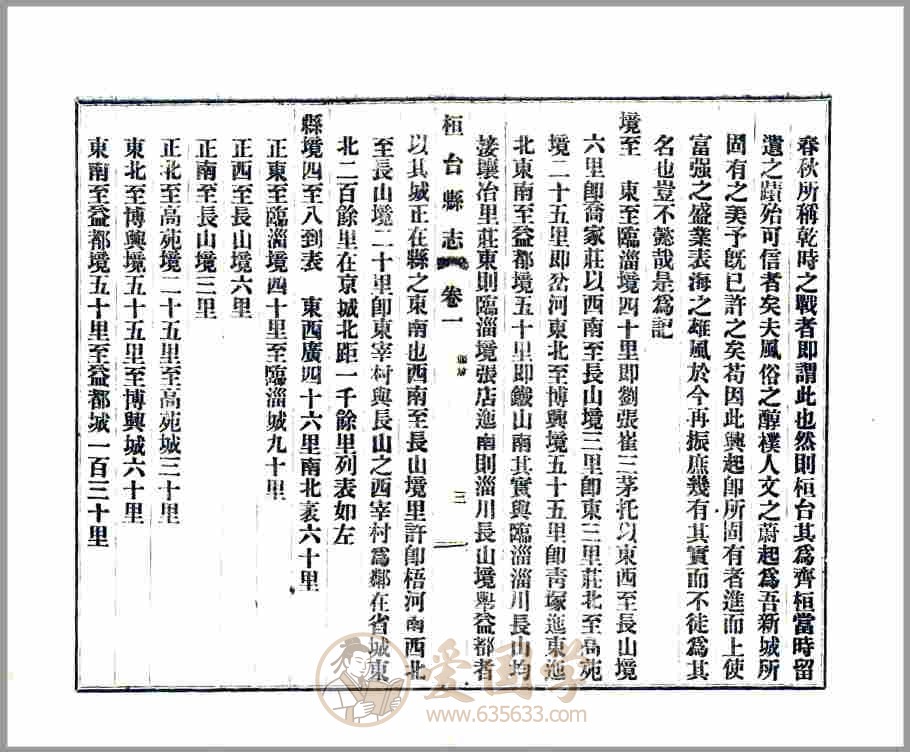 春秋所稱乾時之戰者即謂此也然則桓台其爲齊桓當時留
遺之蹟殆可信者矣夫風俗之醇樸人文之蔚起爲吾新城所
固有之美予既已許之矣苟因此興起即所固有者進而上使
富强之盛業表海之雄風於今再振庶幾有其實而不徒爲其
名也豈不懿哉是爲記
境至　東至臨淄境四十里即劉張崔三茅托以東西至長山境
六里即喬家莊以西南至長山境三里即東三里莊北至高苑
境二十五里即岔河東北至博興境五十五里即靑塚迤東迤
北東南至益都境五十里即鐵山南其實與臨淄淄川長山均
接壤冶里莊東則臨淄境張店迤南則淄川長山境舉益都者
桓台縣志　卷一　三
以其城正在縣之東南也西南至長山境里許即梧河南西北
至長山境二十里即東宰村與長山之西宰村爲鄰在省城東
北二百餘里在京城北距一千餘里列表如左
縣境四至八到表　東西廣四十六里南北袤六十里
正東至臨淄境四十里至臨淄城九十里
正西至長山境六里
正南至長山境三里
正北至高苑境二十五里至高苑城三十里
東北至博興境五十五里至博興城六十里
東南至益都境五十里至益都城一百三十里
爱国学
www.635633.com